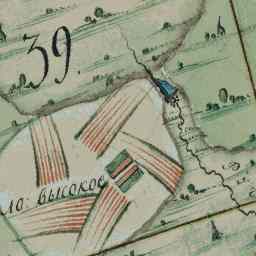 39.
ло: высокое